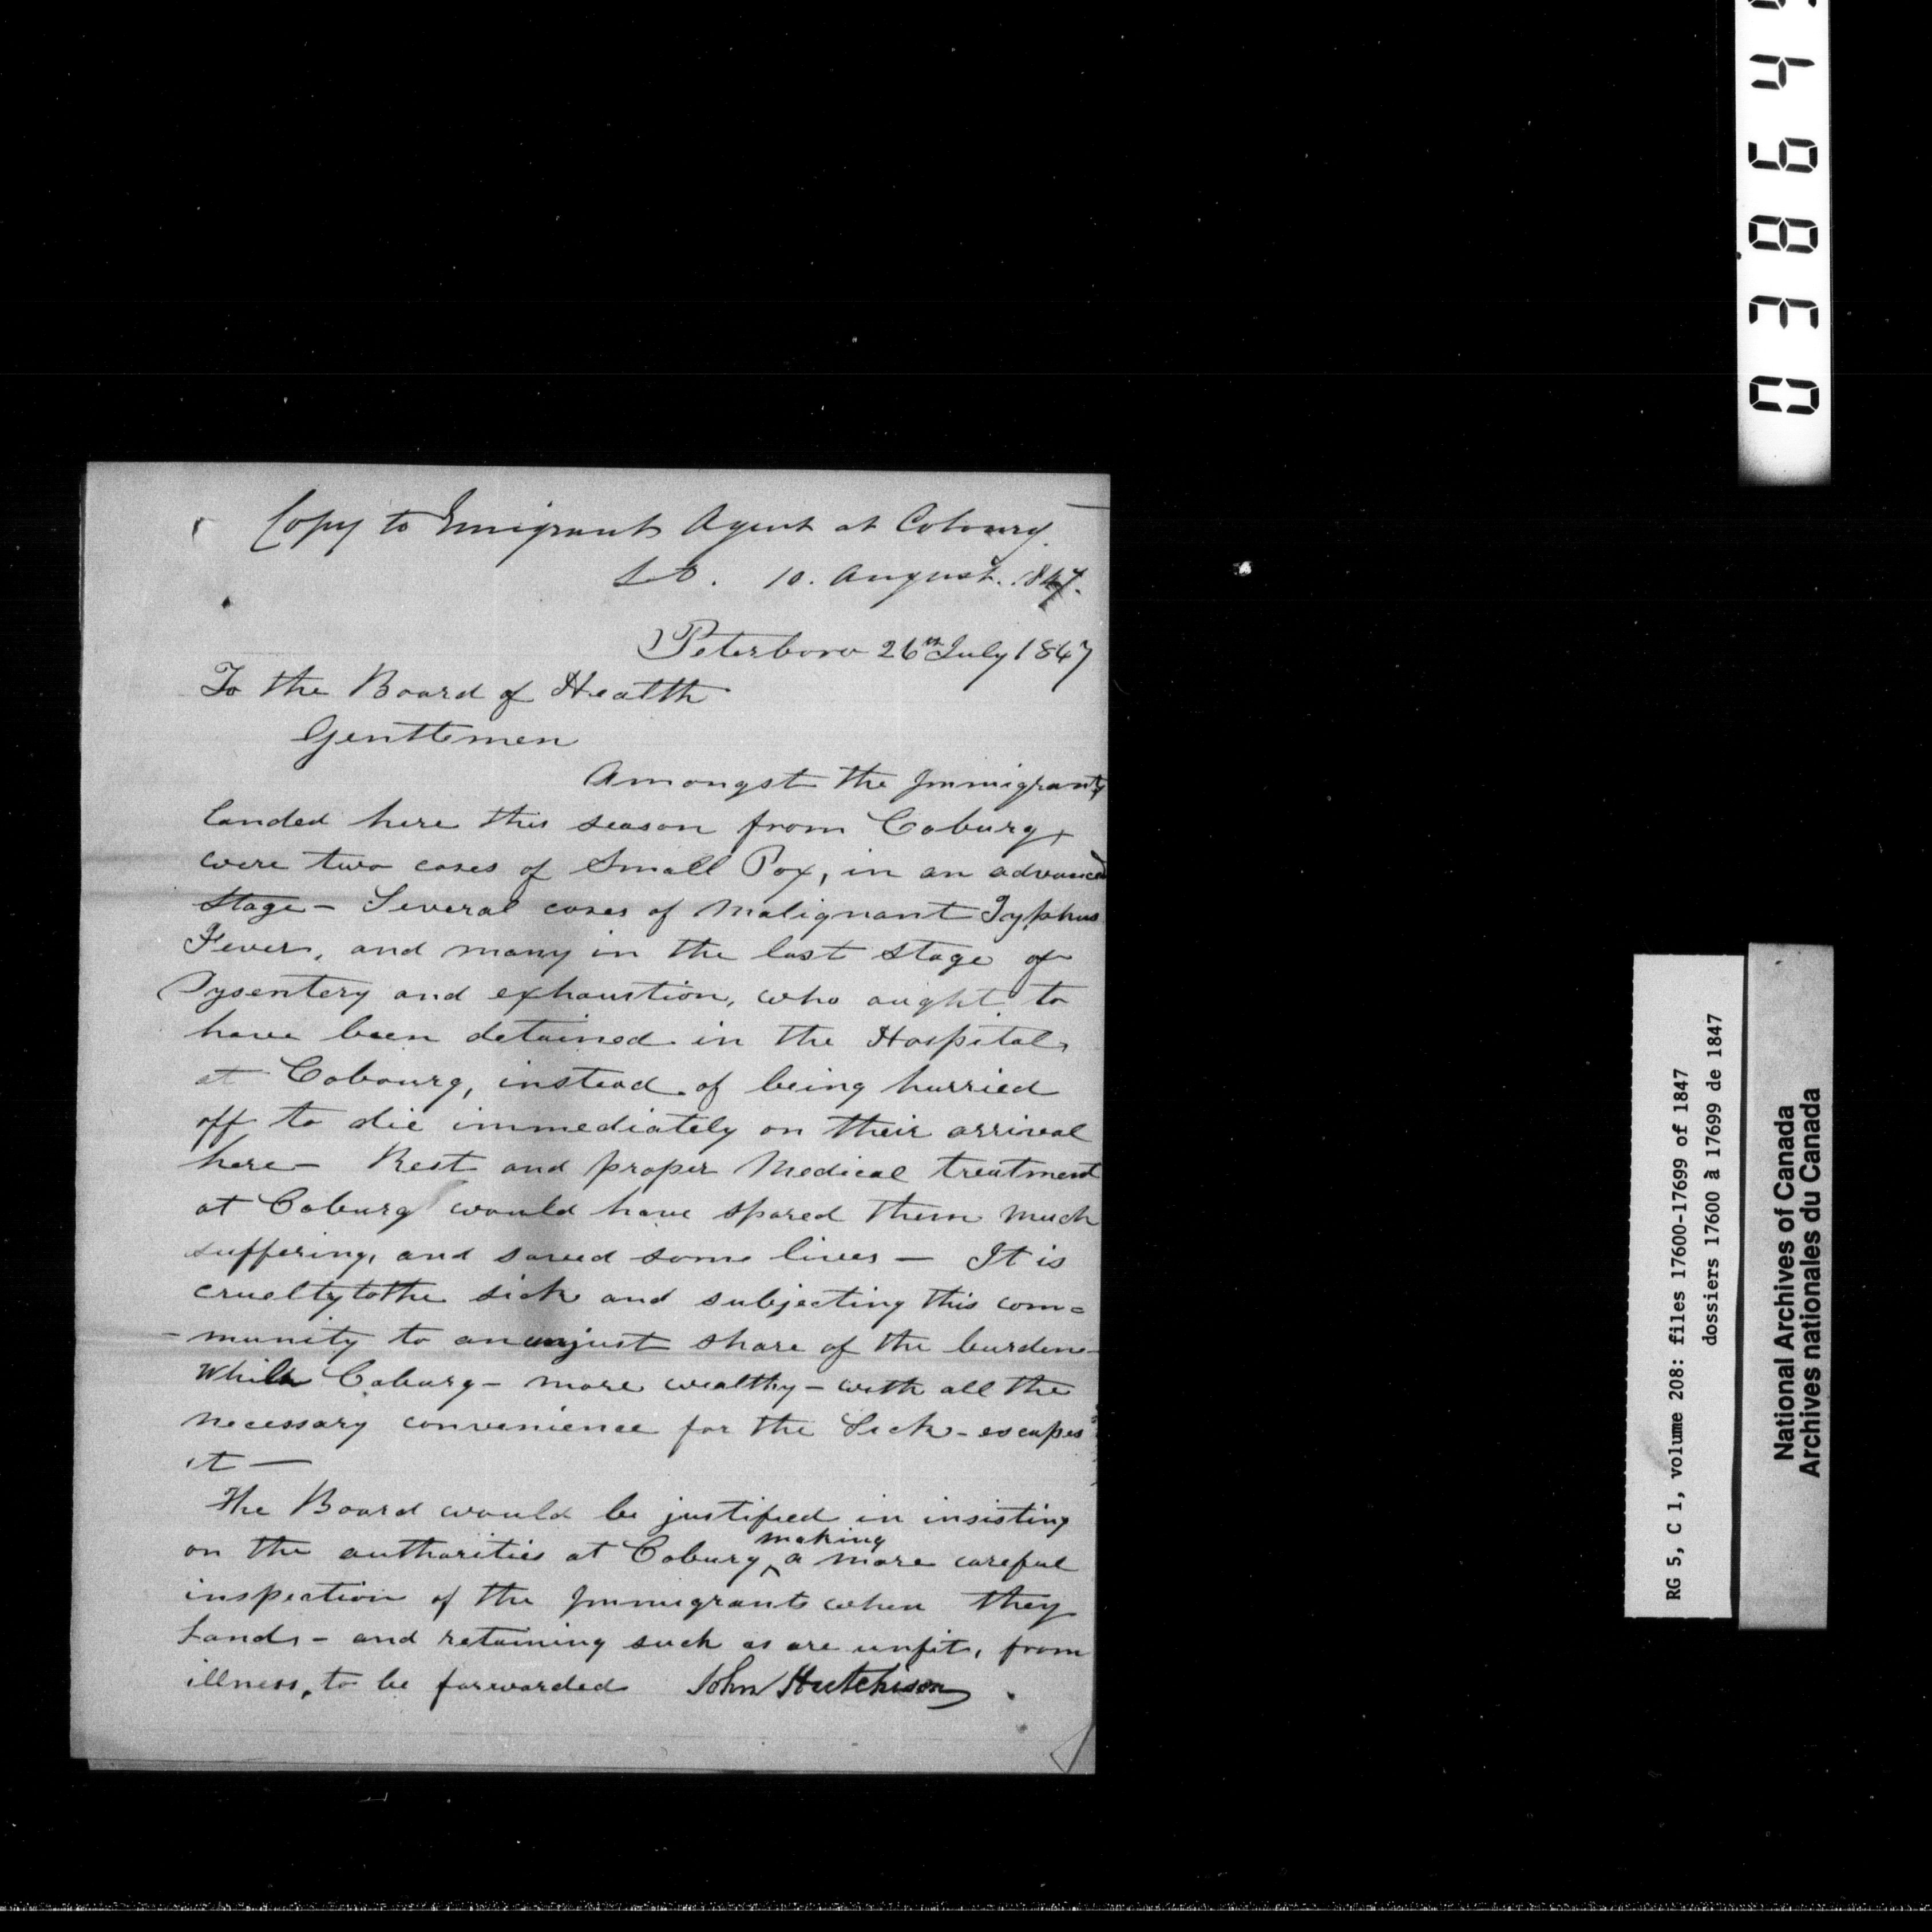 Copy to Emigrant Agent at Cobourg.
10. August. 1847.
Peterboro 26th July 1847
To the Board of Health
Gentlemen
Amongst the Immigrants
landed here this season from Coburg,
were two cases of Small Pox, in an advanced
stage - Several cases of Malignant Typhus
Fever, and many in the last stage of
Dysentery and exhaustion, who aught to
have been detained in the Hospital,
at Cobourg, instead of being hurried
off to die immediately on their arrival
here - Rest and proper Medical treatment
at Coburg would have spared them much
suffering, and saved some lives - It is
cruelty to the sick and subjecting this com=
-munity to an unjust share of the burden -
While Coburg - more wealthy - with all the
necessary convenience for the Sick - escapes
it -
The Board would be justified in insisting
on the authorities at Coburg making a more careful
inspection of the Immigrants when they
Land, - and retaining such as are unfit, from
illness, to be forwarded John Hutchison
RG 5, C 1, volume 208: files 17600-17699 of 1847
dossiers 17600 à 17699 de 1847
National Archives of Canada
Archives nationales du Canada